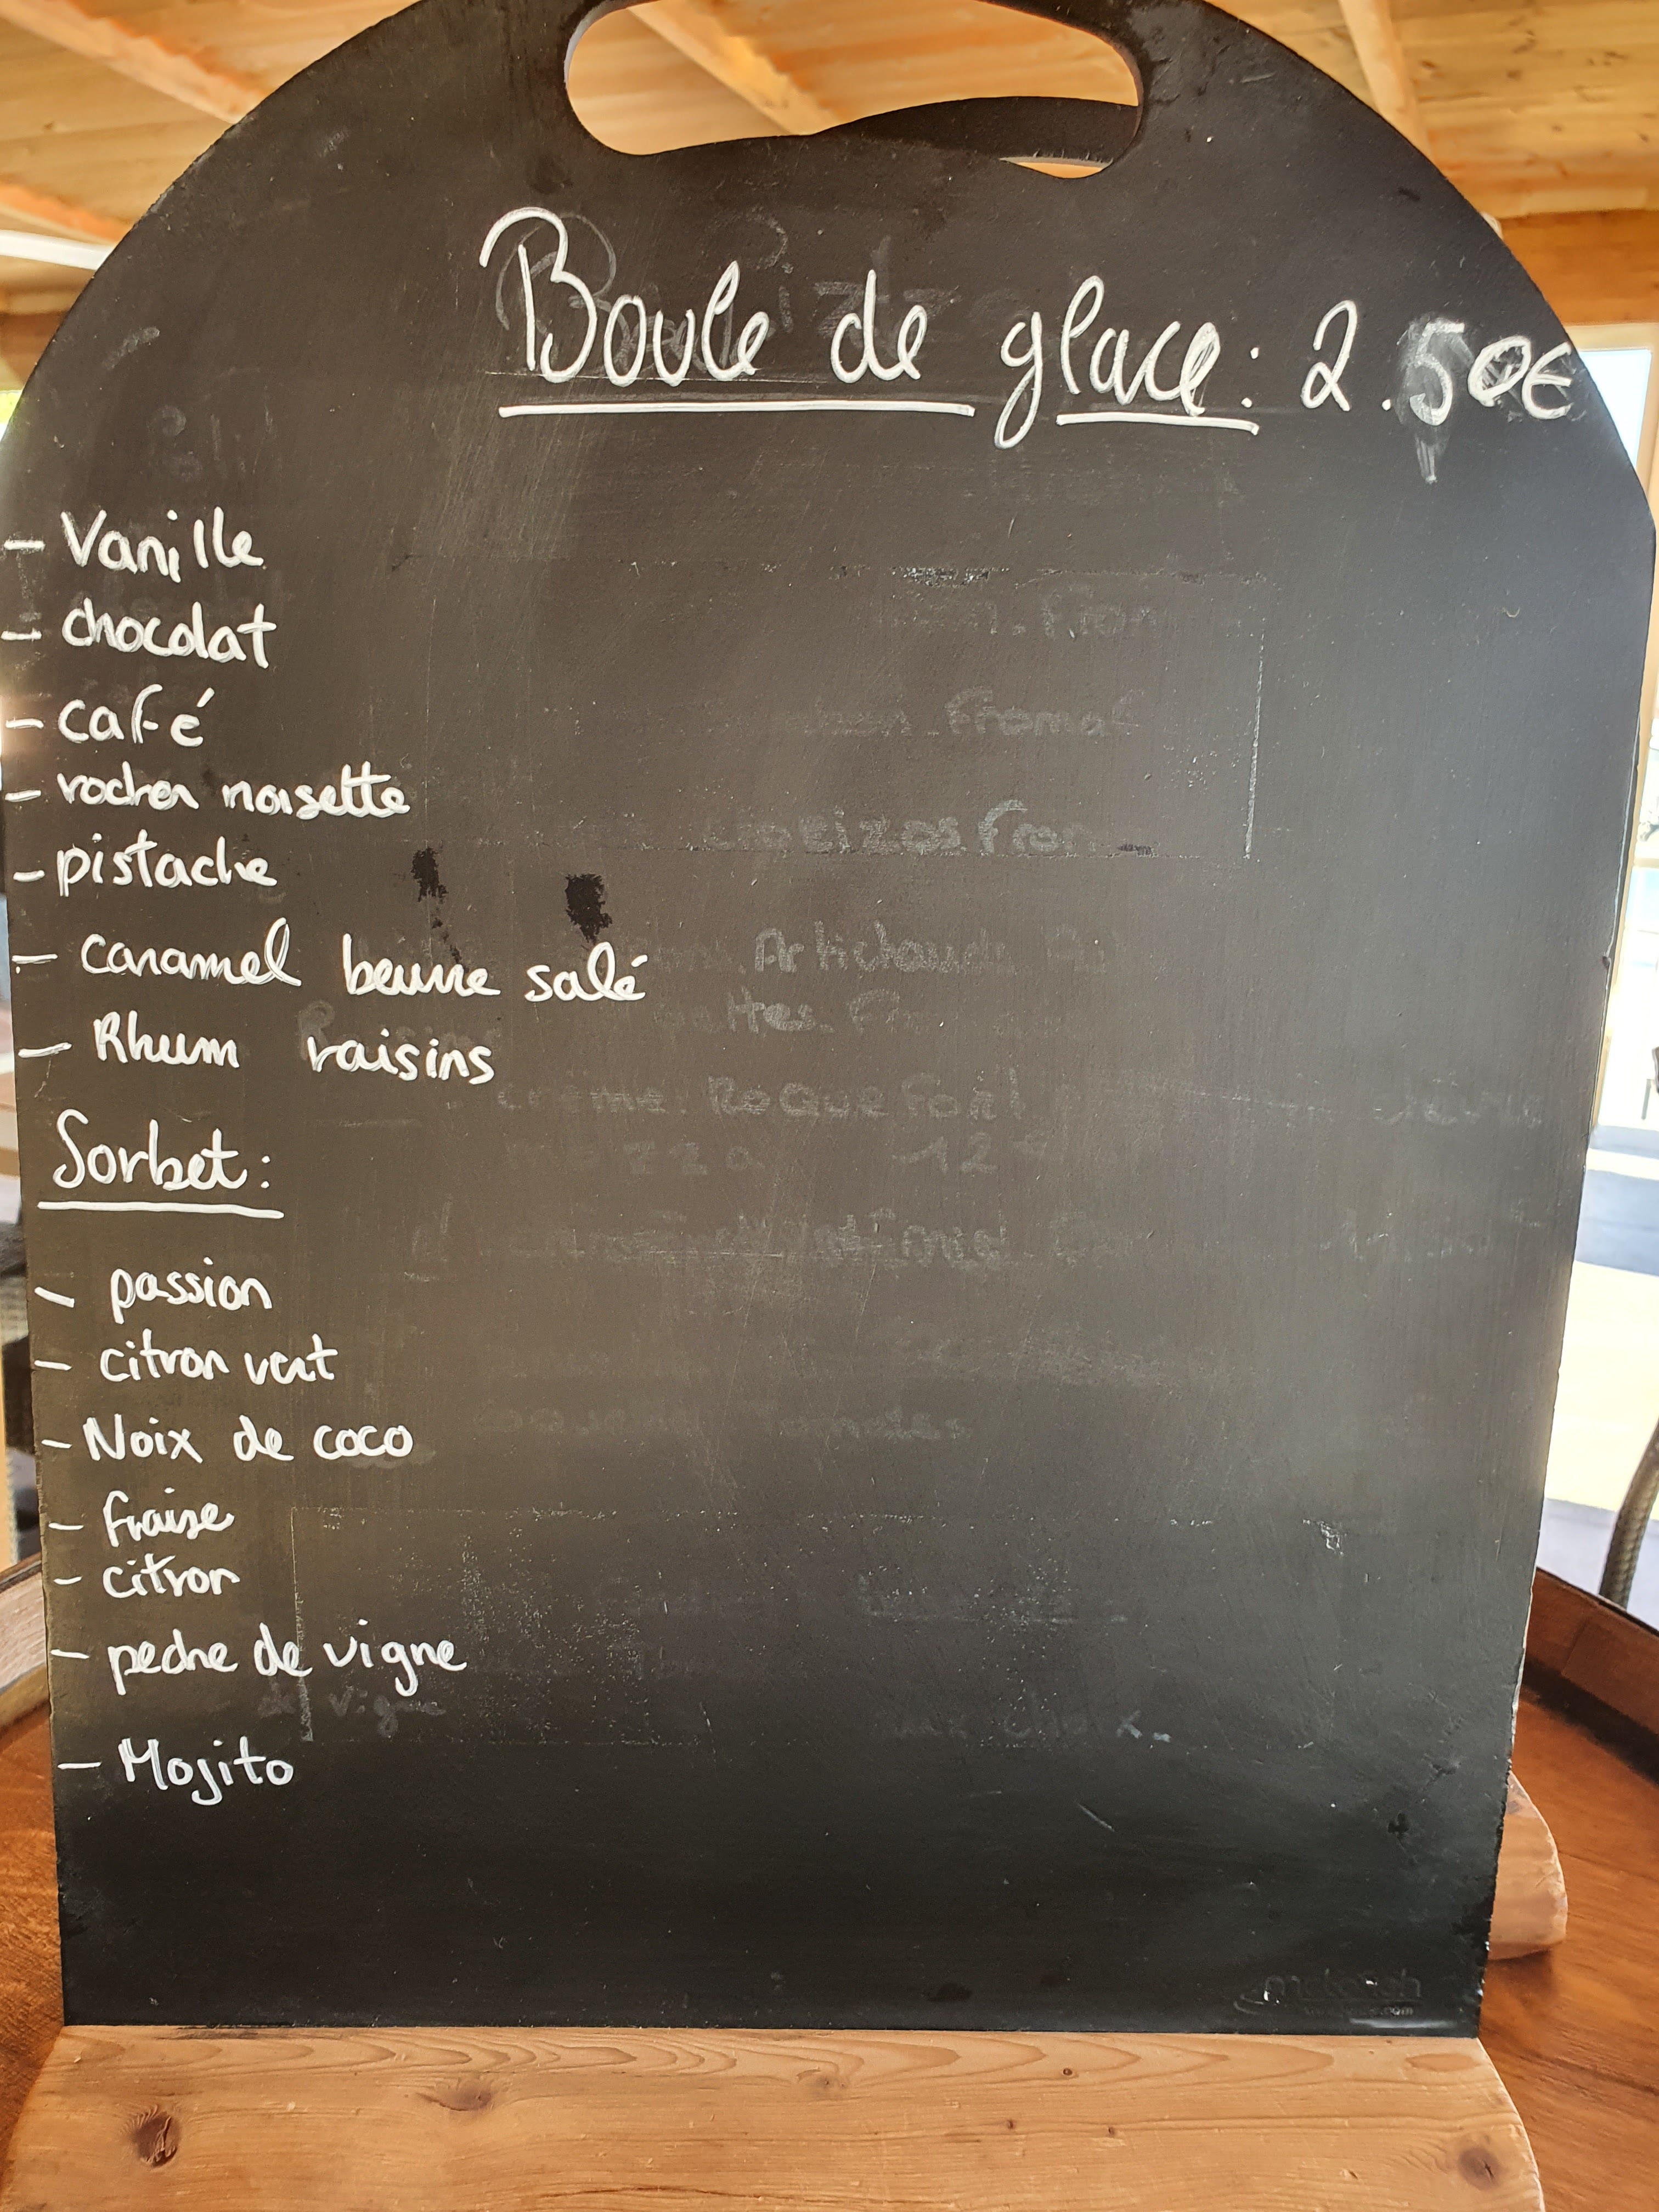 Boule de glace : 2.50€
- Vanille
- chocolat
- café
- rocher noisette
- pistache
- caramel beurre salé
- Rhum raisins
Sorbet :
- passion
- citron vert
- Noix de coco
- fraise
- citron
- peche de vigne
- Mojito